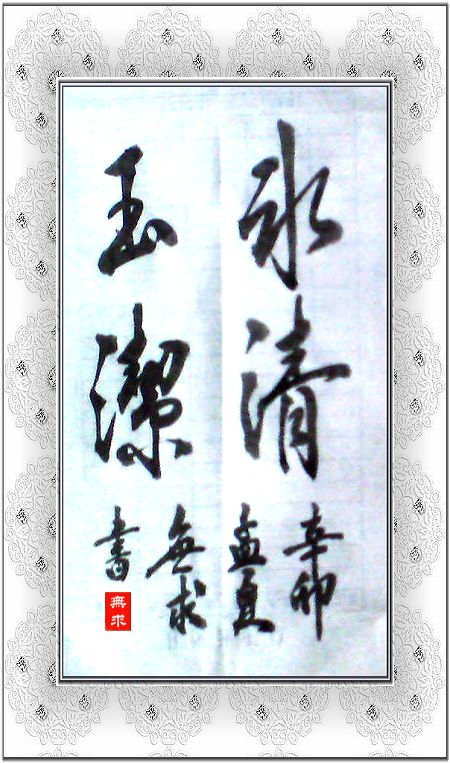 氷清
玉潔
辛卯
孟夏
無求
書
無求